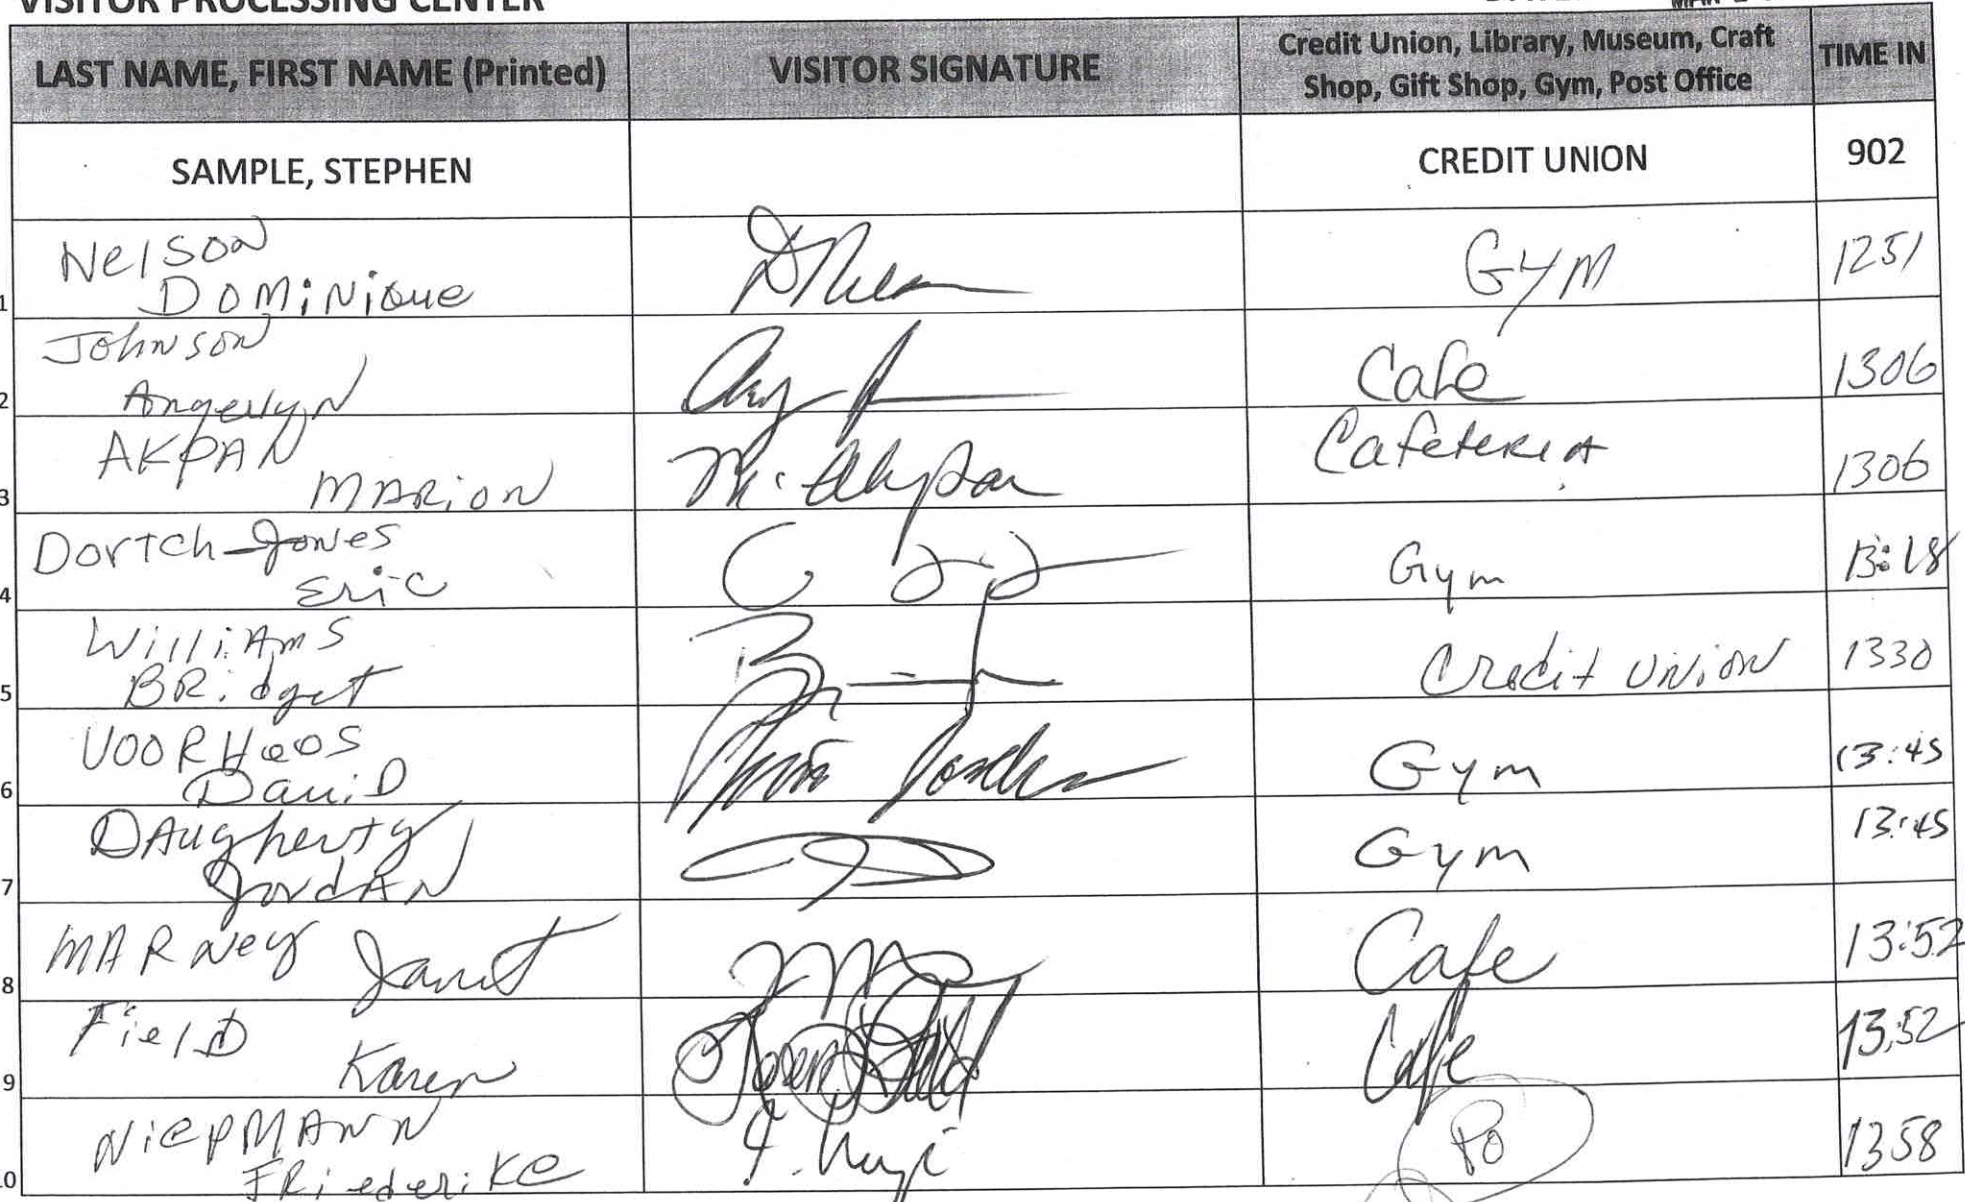 VISITOR PROCESSING CENTER
LAST NAME, FIRST NAME (Printed) VISITOR SIGNATURE Credit Union, Library, Museum, Craft Shop, Gift Shop, Gym, Post Office TIME IN
SAMPLE, STEPHEN CREDIT UNION 902
Nelson
1 Dominique GYM 1251
Johnson
2 Angellyn Cafe 1306
AKPAN
3 MARION M. Akpan Cafeteria 1306
Dortch-Jones
4 Eric Gym 13:18
Williams
5 BRidget Credit Union 1330
VOORHees
6 David Gym 13:45
DAugherty
7 JordAN Gym 13:45
8 MARNey Janet Cafe 13:52
Field
9 Karen Cafe 13:52
NiepMANN
FRiederike PO 1358